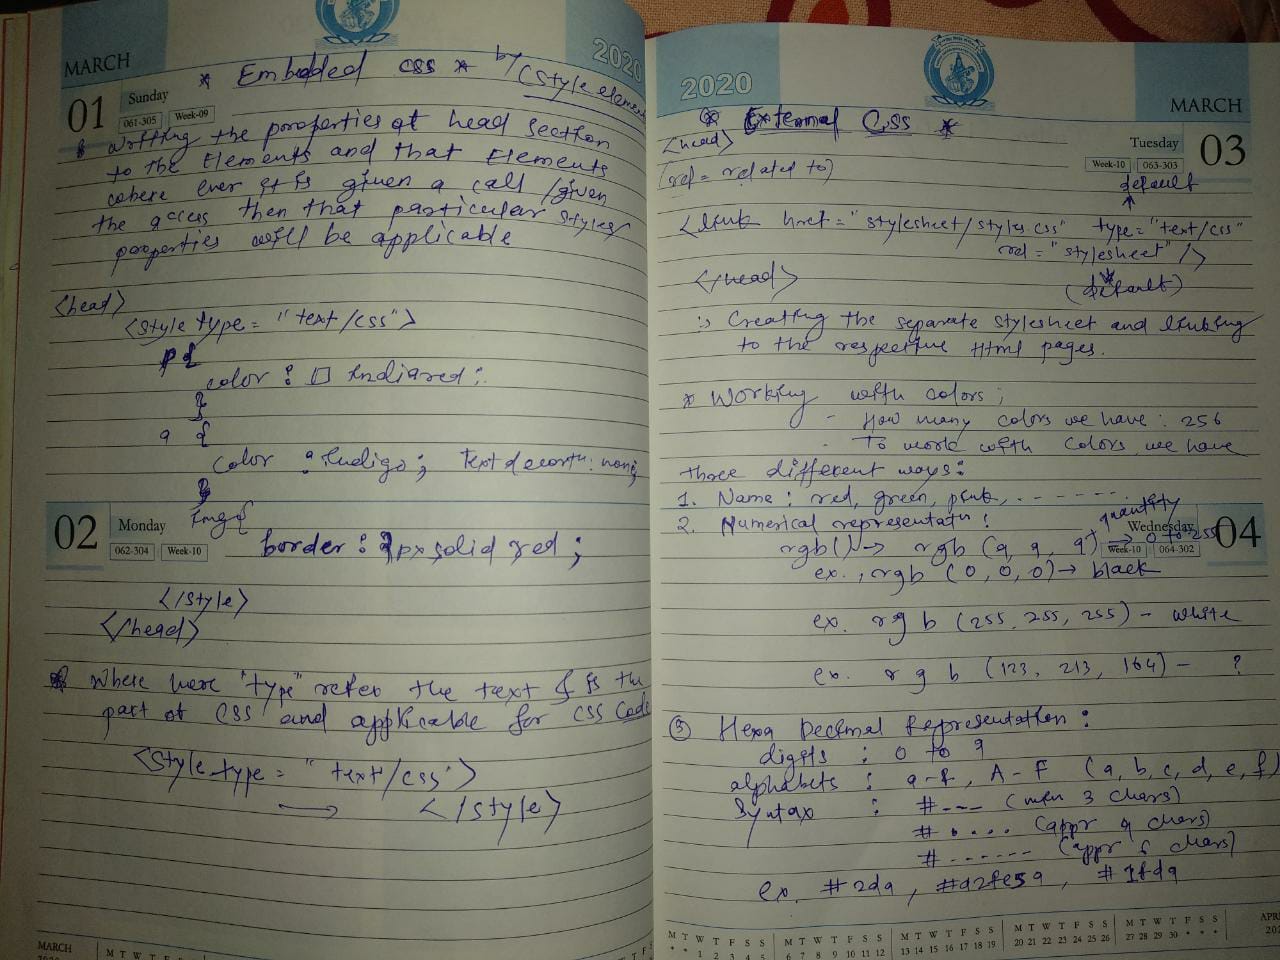 MARCH
2020
* Embedded css * by (Style element
01
Sunday
061-305 Week-09
* Writting the properties at head section
to the Elements and that Elements
where ever it is given a call / given
the access then that particular styles/
properties will be applicable
<head>
<style type = "text/css">
p {
color : Indiared ;
}
a {
color : Indigo ; text decorth : none;
}
02
Monday
062-304 Week-10
img {
border : 1px solid red ;
</style>
</head>
* Where here "type" refer the text & is the
part of CSS and applicable for CSS Code
<Style type = "text/css">
→ </style>
MARCH
M T W T F S S M T W T F S
2020
MARCH
* External Css *
<head>
[rel = related to)
Tuesday
03
Week-10 063-303
default
<link href = "stylesheet/styles.css" type = "text/css"
rel = "stylesheet" />
</head>
(default)
:> Creating the separate stylesheet and linking
to the respective Html pages.
* Working with colors ;
- How many colors we have : 256
- To work with colors we have
three different ways :
1. Name : red, green, pink, - - - - - - -
2. Numerical representatn :
quantity
Wednesday
04
Week-10 064-302
rgb( ) → rgb (q, q, q) → 0 to 255
ex., rgb (0, 0, 0) → black
ex. rgb (255, 255, 255) - white
ex. rgb (123, 213, 164) - ?
③ Hexa Decimal Representation :
digits : 0 to 9
alphabets : a-f, A-F (a, b, c, d, e, f)
Syntax : # - - - (min 3 chars)
# . . . . (appr 4 chars)
# - - - - - - (appr 6 chars)
ex. #2da, #a2fe5a, #1fda
M T W T F S S M T W T F S S M T W T F S S M T W T F S S M T W T F S S
* * 1 2 3 4 5 6 7 8 9 10 11 12 13 14 15 16 17 18 19 20 21 22 23 24 25 26 27 28 29 30 * * *